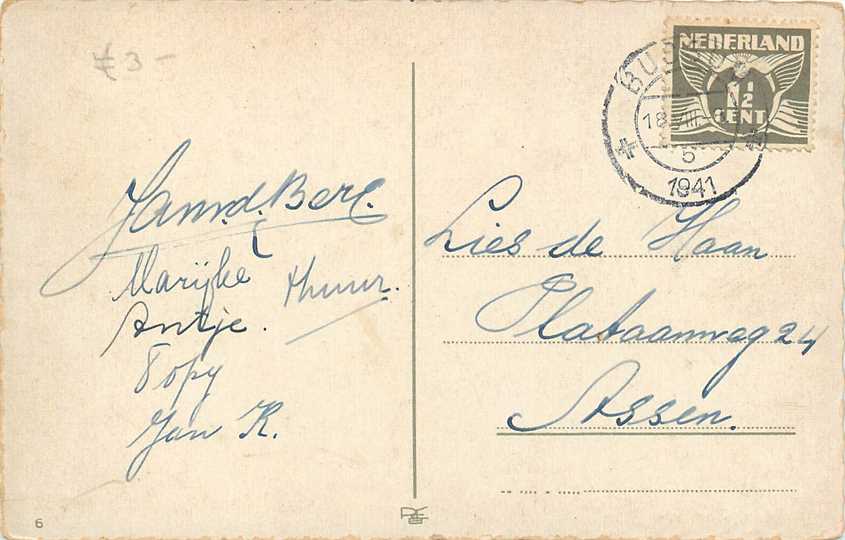 € 3 -
NEDERLAND
1½
CENT
18 VIII
5
1941
Jan v. d. Berg.
Marijke
Antje.
Topy
Jan K.
Lies de Haan
Plataanweg 24
Assen.
6